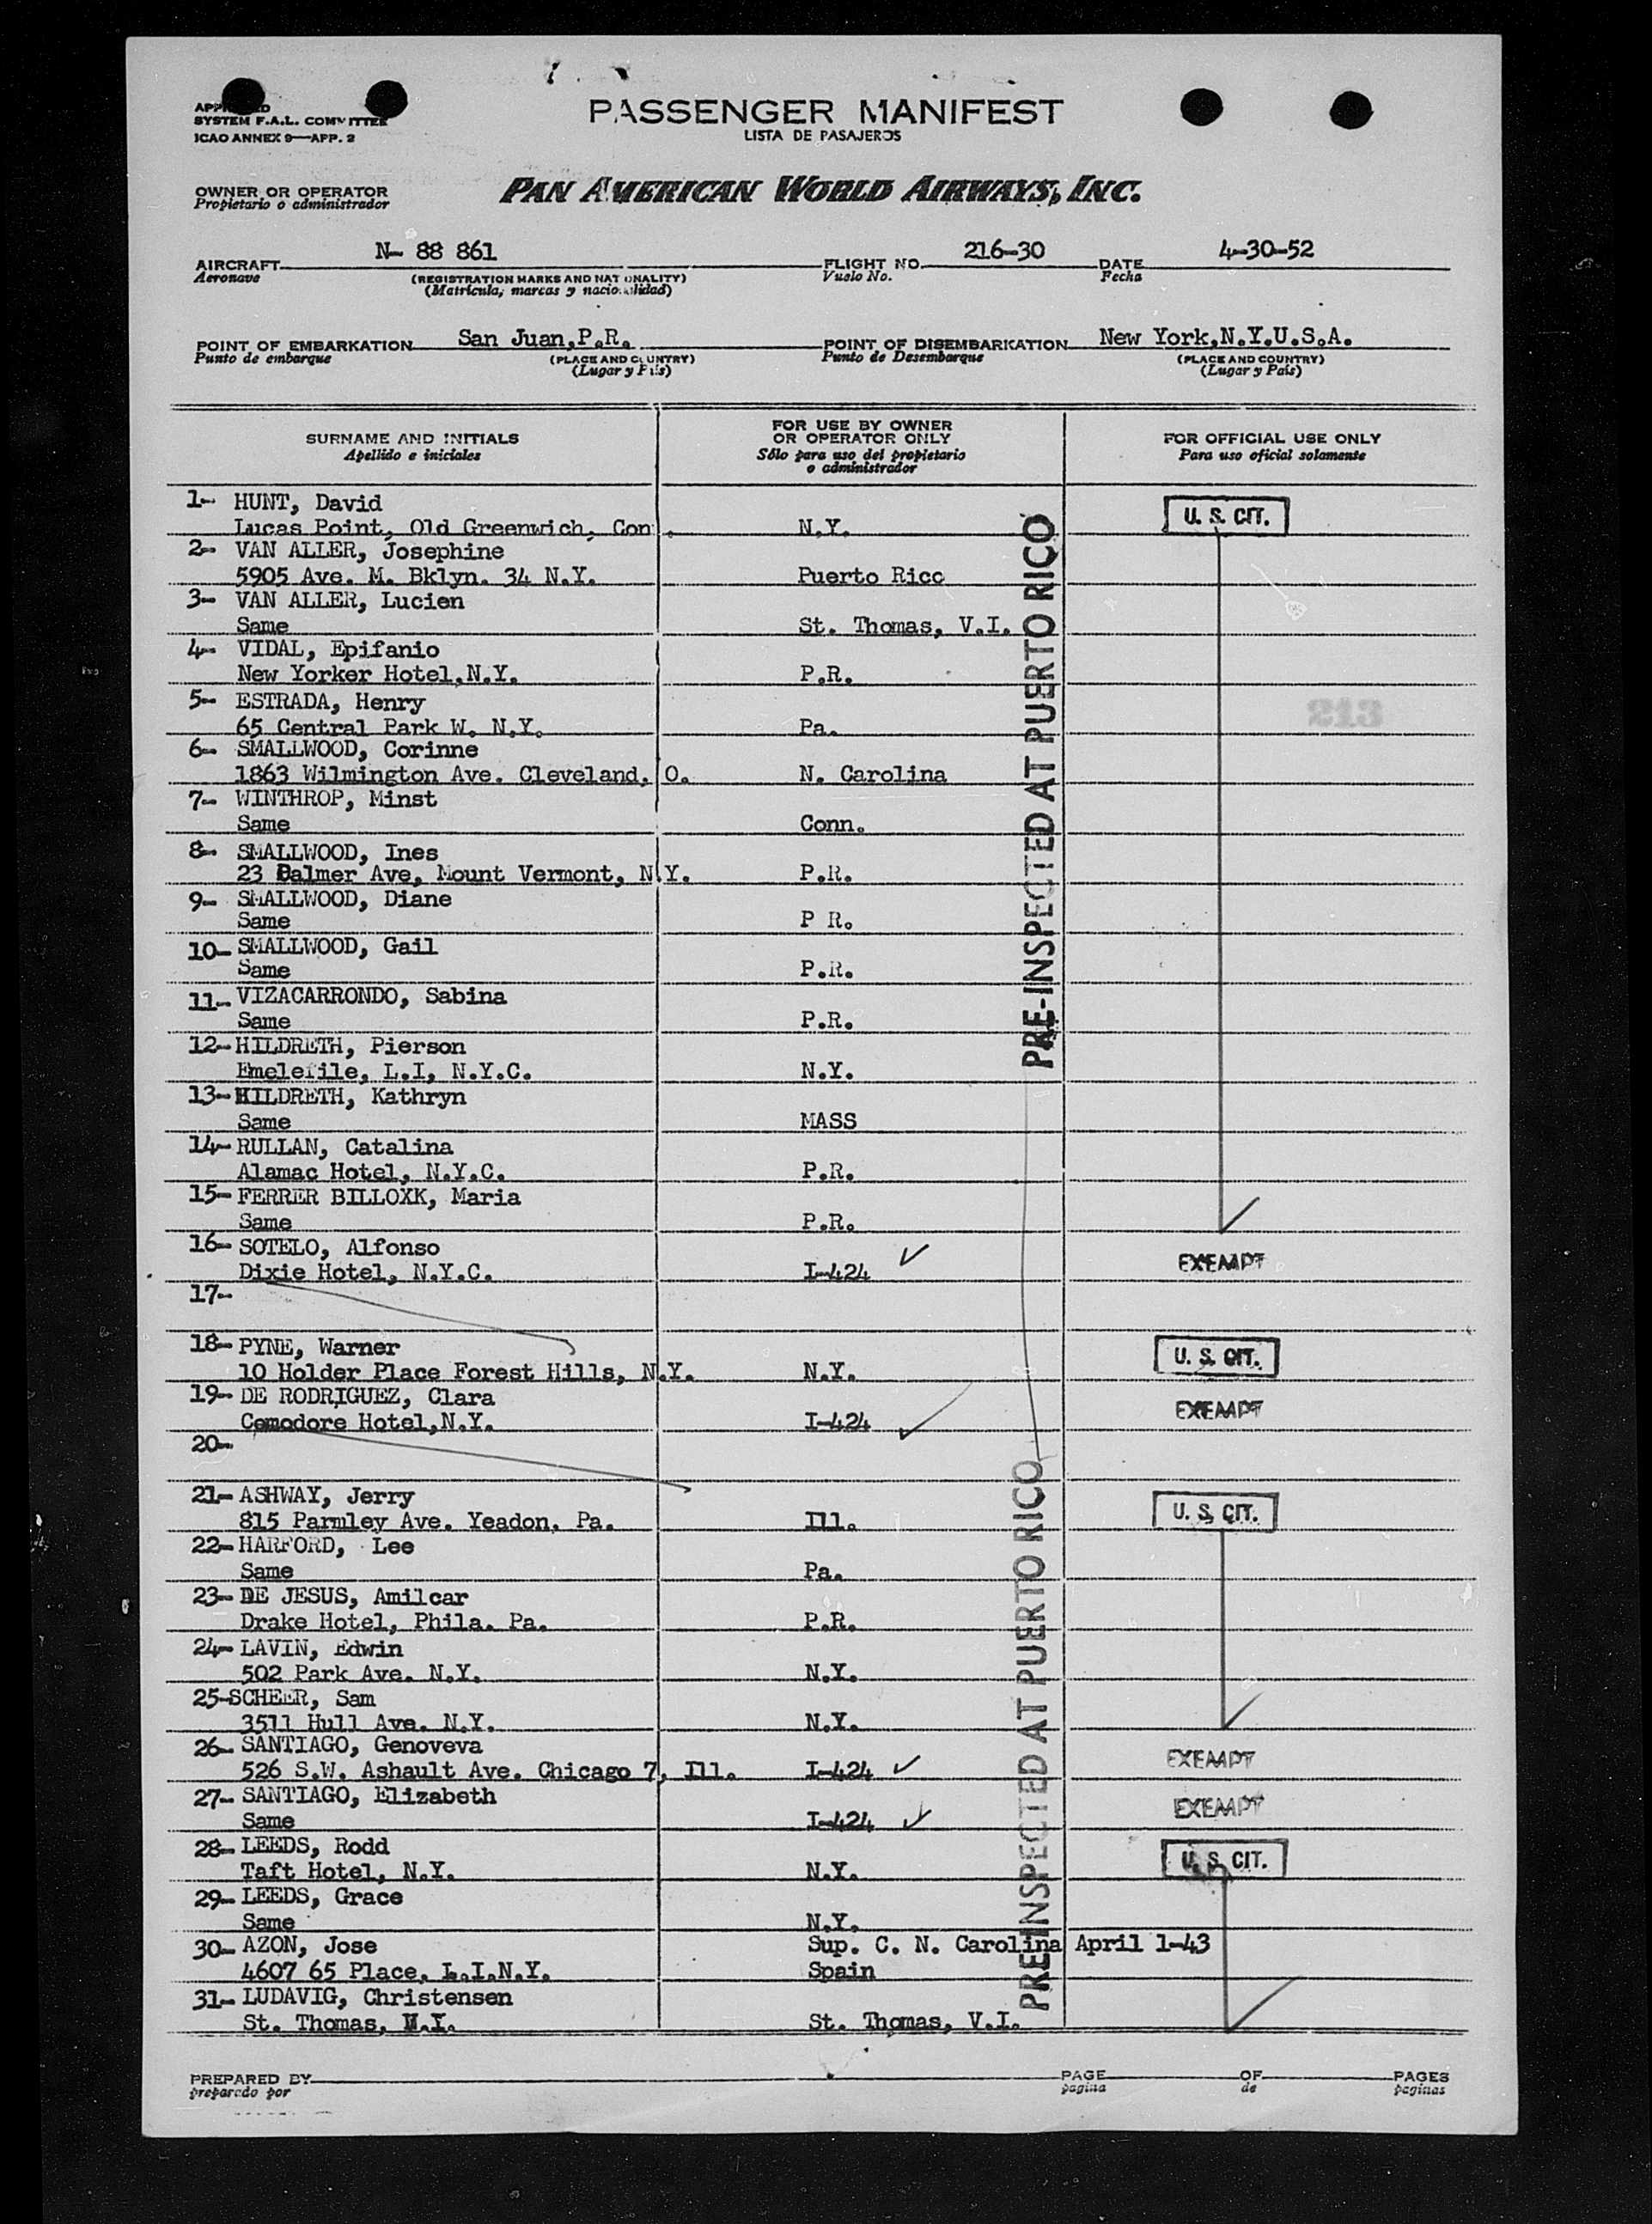 SYSTEM F.A.L. COMMITTEE
ICAO ANNEX 9—APP. 2
PASSENGER MANIFEST
LISTA DE PASAJEROS
OWNER OR OPERATOR
Propietario o administrador
PAN AMERICAN WORLD AIRWAYS, INC.
AIRCRAFT N- 88 861 FLIGHT NO. 216-30 DATE 4-30-52
Aeronave (REGISTRATION MARKS AND NATIONALITY) Vuelo No. Fecha
(Matricula, marcas y nacionalidad)
POINT OF EMBARKATION San Juan,P.R. POINT OF DISEMBARKATION New York,N.Y.U.S.A.
Punto de embarque (PLACE AND COUNTRY) Punto de Desembarque (PLACE AND COUNTRY)
(Lugar y País) (Lugar y País)
SURNAME AND INITIALS
Apellido e iniciales
FOR USE BY OWNER
OR OPERATOR ONLY
Sólo para uso del propietario
o administrador
FOR OFFICIAL USE ONLY
Para uso oficial solamente
1- HUNT, David U. S. CIT.
Lucas Point, Old Greenwich, Con . N.Y.
2- VAN ALLER, Josephine
5905 Ave. M. Bklyn. 34 N.Y. Puerto Rico
3- VAN ALLER, Lucien
Same St. Thomas, V.I.
4- VIDAL, Epifanio
New Yorker Hotel,N.Y. P.R.
5- ESTRADA, Henry 213
65 Central Park W. N.Y. Pa.
6- SMALLWOOD, Corinne
1863 Wilmington Ave. Cleveland, O. N. Carolina
7- WINTHROP, Minst
Same Conn.
8- SMALLWOOD, Ines
23 Palmer Ave, Mount Vermont, N.Y. P.R.
9- SMALLWOOD, Diane
Same P R.
10- SMALLWOOD, Gail
Same P.R.
11- VIZACARRONDO, Sabina
Same P.R.
12- HILDRETH, Pierson
L.I, N.Y.C. N.Y.
13- HILDRETH, Kathryn
Same MASS
14- RULLAN, Catalina
Alamac Hotel, N.Y.C. P.R.
15- FERRER BILLOXK, Maria
Same P.R.
16- SOTELO, Alfonso EXEMPT
Dixie Hotel, N.Y.C. I-424
17-
18- PYNE, Warner U. S. CIT.
10 Holder Place Forest Hills, N.Y. N.Y.
19- DE RODRIGUEZ, Clara EXEMPT
Comodore Hotel,N.Y. I-424
20-
21- ASHWAY, Jerry U. S. CIT.
815 Parmley Ave. Yeadon, Pa. Ill.
22- HARFORD, Lee
Same Pa.
23- DE JESUS, Amilcar
Drake Hotel, Phila. Pa. P.R.
24- LAVIN, Edwin
502 Park Ave. N.Y. N.Y.
25-SCHEER, Sam
3511 Hull Ave. N.Y. N.Y.
26- SANTIAGO, Genoveva EXEMPT
526 S.W. Ashault Ave. Chicago 7, Ill. I-424
27- SANTIAGO, Elizabeth EXEMPT
Same I-424
28- LEEDS, Rodd U. S. CIT.
Taft Hotel, N.Y. N.Y.
29- LEEDS, Grace
Same N.Y.
30- AZON, Jose Sup. C. N. Carolina April 1-43
4607 65 Place, L.I.N.Y. Spain
31- LUDAVIG, Christensen
St. Thomas, St. Thomas, V.I.
PRE-INSPECTED AT PUERTO RICO
PRE-INSPECTED AT PUERTO RICO
PREPARED BY PAGE OF PAGES
preparado por pagina de paginas